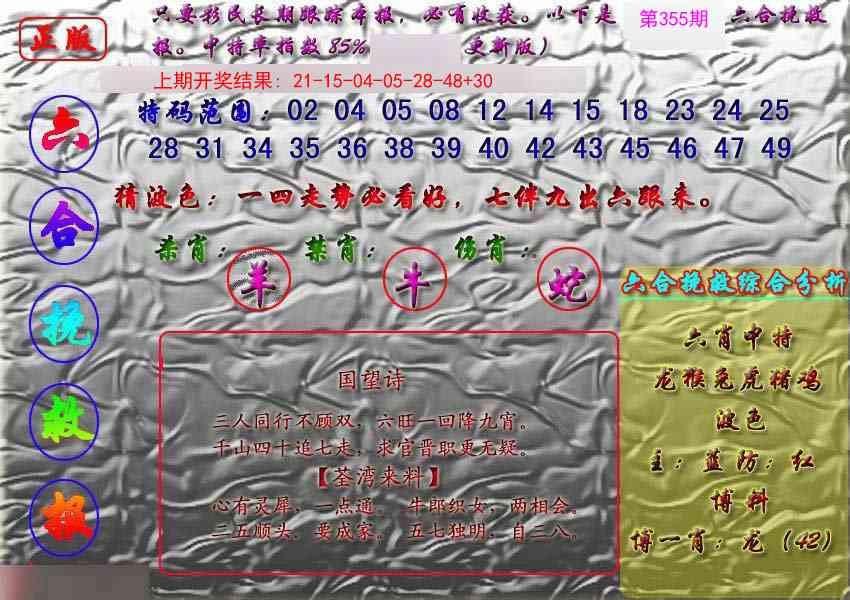 正版
只要彩民长期跟踪本报，必有收获。以下是 第355期 六合挽救
报。中特率指数85% 更新版）
上期开奖结果：21-15-04-05-28-48+30
特码范围：02 04 05 08 12 14 15 18 23 24 25
28 31 34 35 36 38 39 40 42 43 45 46 47 49
猜波色：一四走势必看好，七伴九出六跟来。
杀肖：羊 禁肖：牛 伤肖：蛇
六合挽救报
国望诗
三人同行不顾双，六旺一回降九宵。
千山四十追七走，求官晋职更无疑。
【荃湾来料】
心有灵犀，一点通。 牛郎织女，两相会。
二五顺头，要成家。 五七独明，自三八。
六合挽救综合分析
六肖中特
龙猴兔虎猪鸡
波色
主：蓝防：红
博料
博一肖：龙（42）